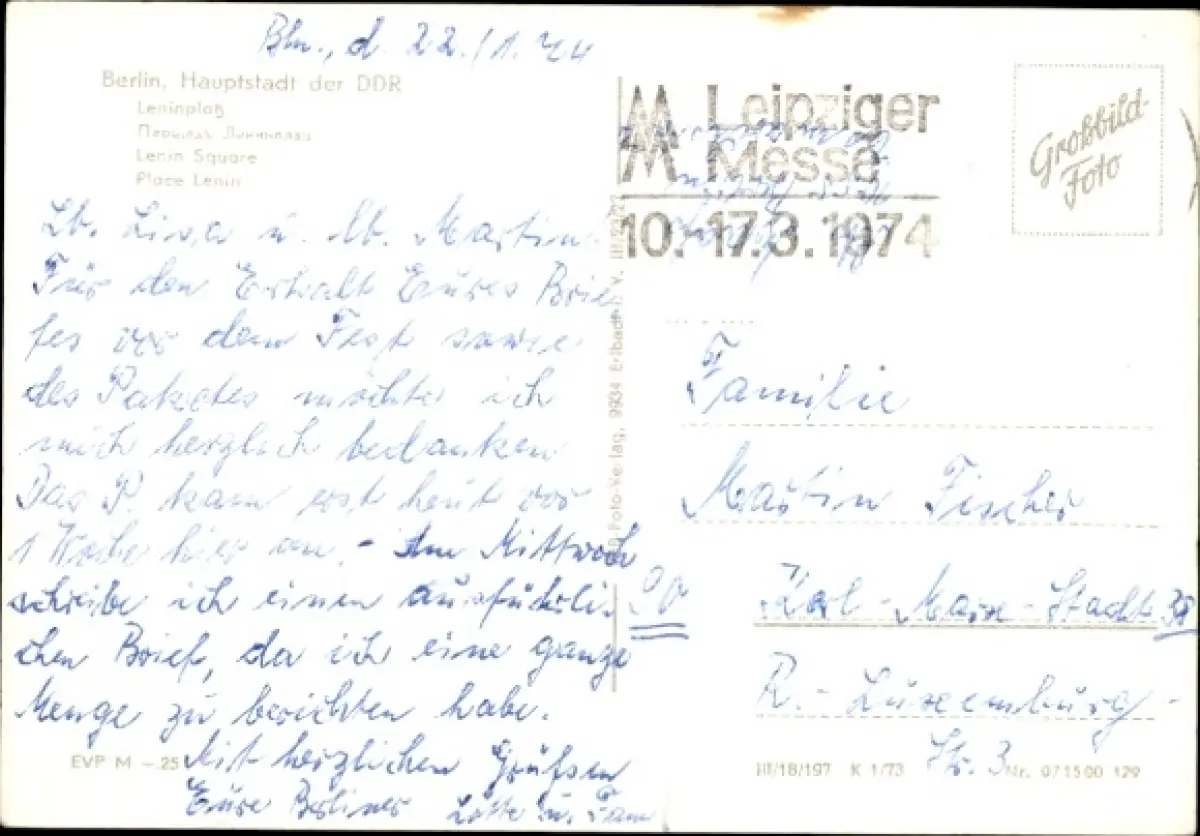 Bln., d. 22./1. 74
Berlin, Hauptstadt der DDR
Leninplatz
Площадь
Lenin Square
Place Lenin
Lb. Lisa u. lb. Martin
Für den Erhalt Eures Brie
fes vor dem Fest sowie
des Paketes möchte ich
mich herzlich bedanken
Das P. kam erst heut vor
1 Woche hier an. - Am Mittwoch
schreibe ich einen ausführli-
chen Brief, da ich eine ganze
Menge zu berichten habe.
Mit herzlichen Grüßen
Eure Berliner Lotte u. Fam
EVP M -.25
Foto-Verlag, 9934
MM Leipziger
Messe
10.-17.3.1974
Großbild-
Foto
Familie
Martin Fischer
90 Karl-Marx-Stadt
R.-Luxemburg-
Str. 3
III/18/197 K 1/73 Nr. 071500 129